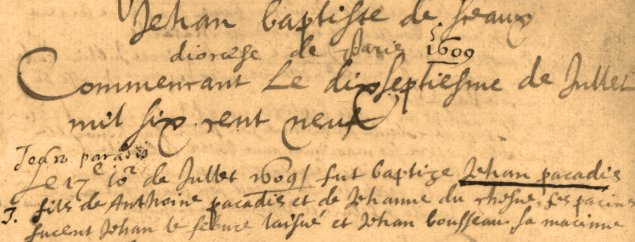 Jehan baptiste de sceaux
diocese de Paris 1609
Commencant Le dixseptiesme de Jullet
mil six cent neuf
Jehan paradis
Le 17e jor de Jullet 1609 fut baptize Jehan paradis
J. fils de Anthoine paradis et de Jehanne du rhosne, ses parins
fucent Jehan le febure laisné et Jehan bousseau sa marinne